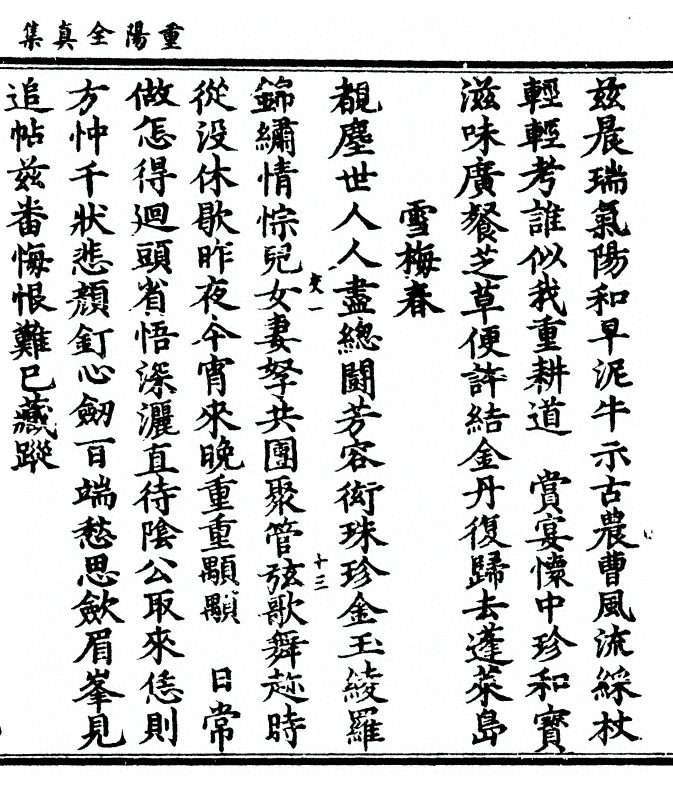 重陽全真集
茲晨瑞氣陽和早泥牛示古農曹風流綵杖
輕輕考誰似我重耕道　賞宴懷中珍和寶
滋味廣餐芝草便許結金丹復歸去蓬萊島
雪梅春
覩塵世人人盡總鬪芳容衒珠珍金玉綾羅
錦繡情悰兒女妻孥共團聚管弦歌舞趂時
交一
十三
從没休歇昨夜今宵來晚重重顒顒　日常
做怎得迴頭省悟深灑直待陰公取來恁則
方忡千狀悲顏釘心劒百端愁思歛眉峯見
追帖茲畨悔恨難已藏蹤